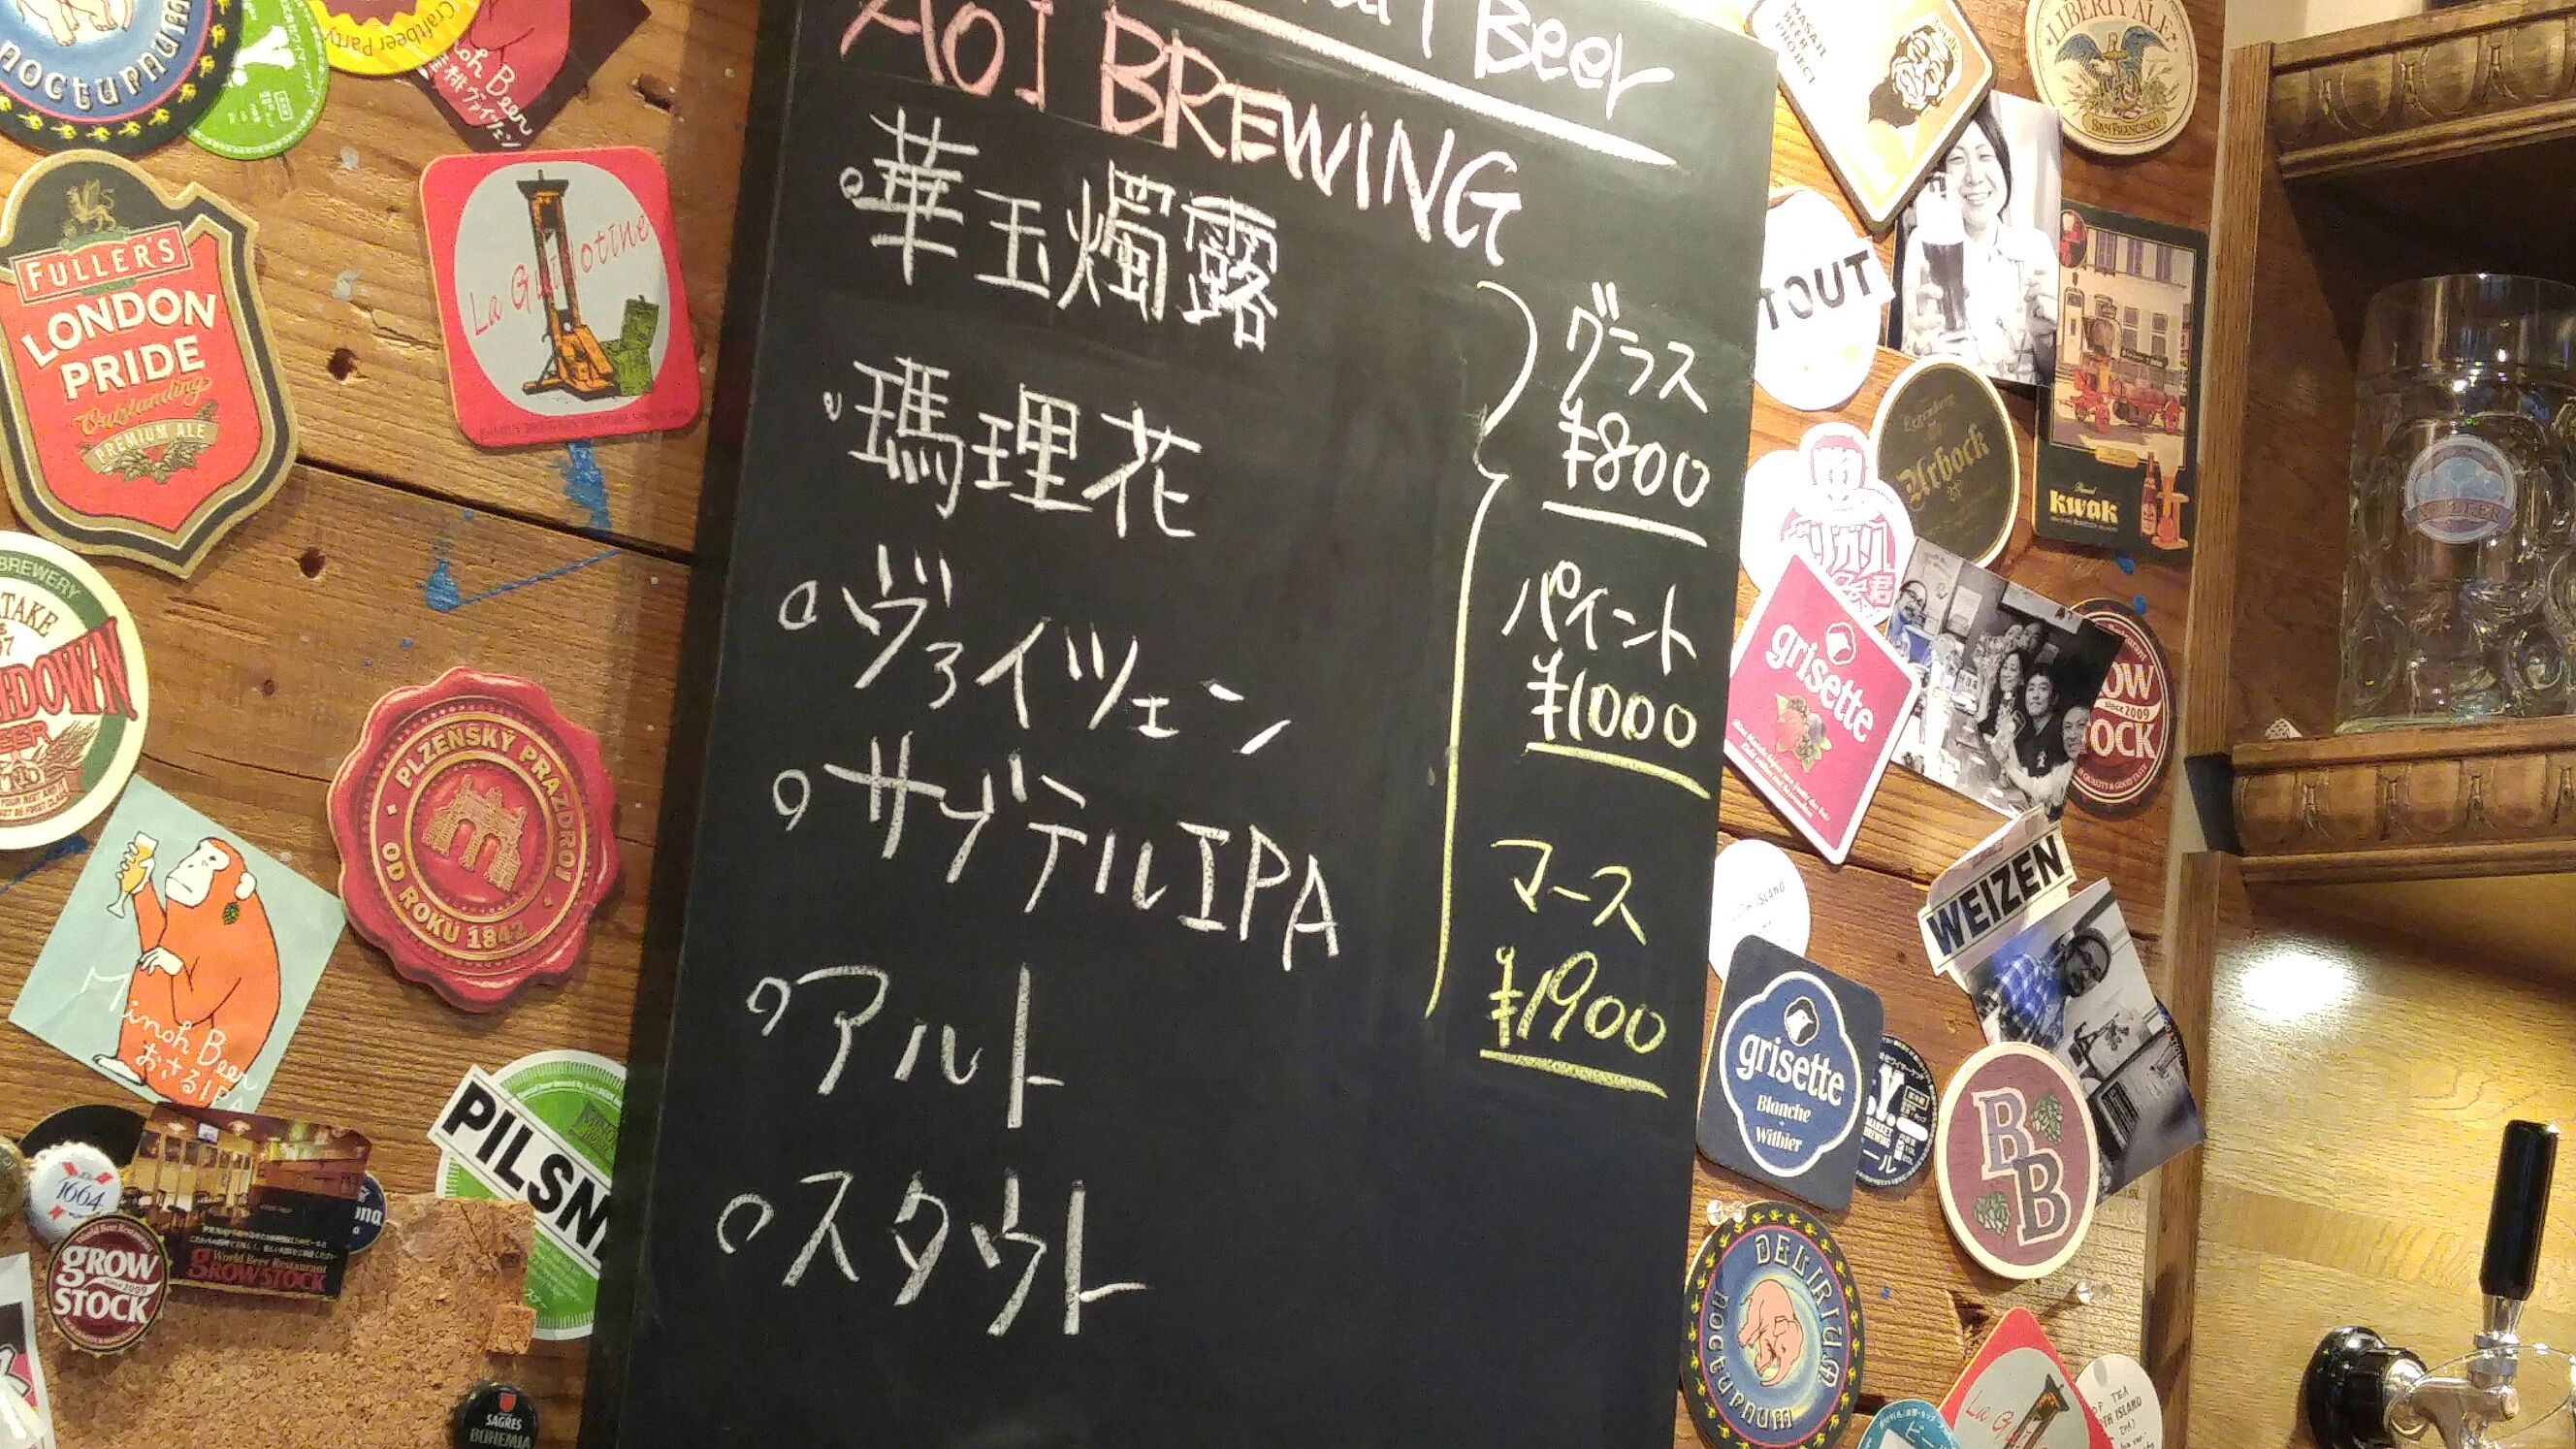 Beer
AOI BREWING
華玉燭露
瑪理花
ヴァイツェン
サブテルIPA
アルト
スタウト
グラス
¥800
パイント
¥1000
マース
¥1900
NOCTURNUM
Craftbeer Party
Beer
ヴァイツェン
FULLER'S
LONDON
PRIDE
Outstanding
PREMIUM ALE
La Guillotine
BREWERY
PLZEŇSKÝ PRAZDROJ
OD ROKU 1842
Minoh Beer
おさるIPA
PILSN
1664
GROW
since 2009
STOCK
World Beer Restaurant
GROWSTOCK
SAGRES
BOHEMIA
MASAJI
BEER
PROJECT
LIBERTY ALE
SAN FRANCISCO
TOUT
Urbock
kwak
grisette
OW
since 2009
OCK
WEIZEN
grisette
Blanche
Witbier
BB
DELIRIUM
NOCTURNUM
La G
TEA